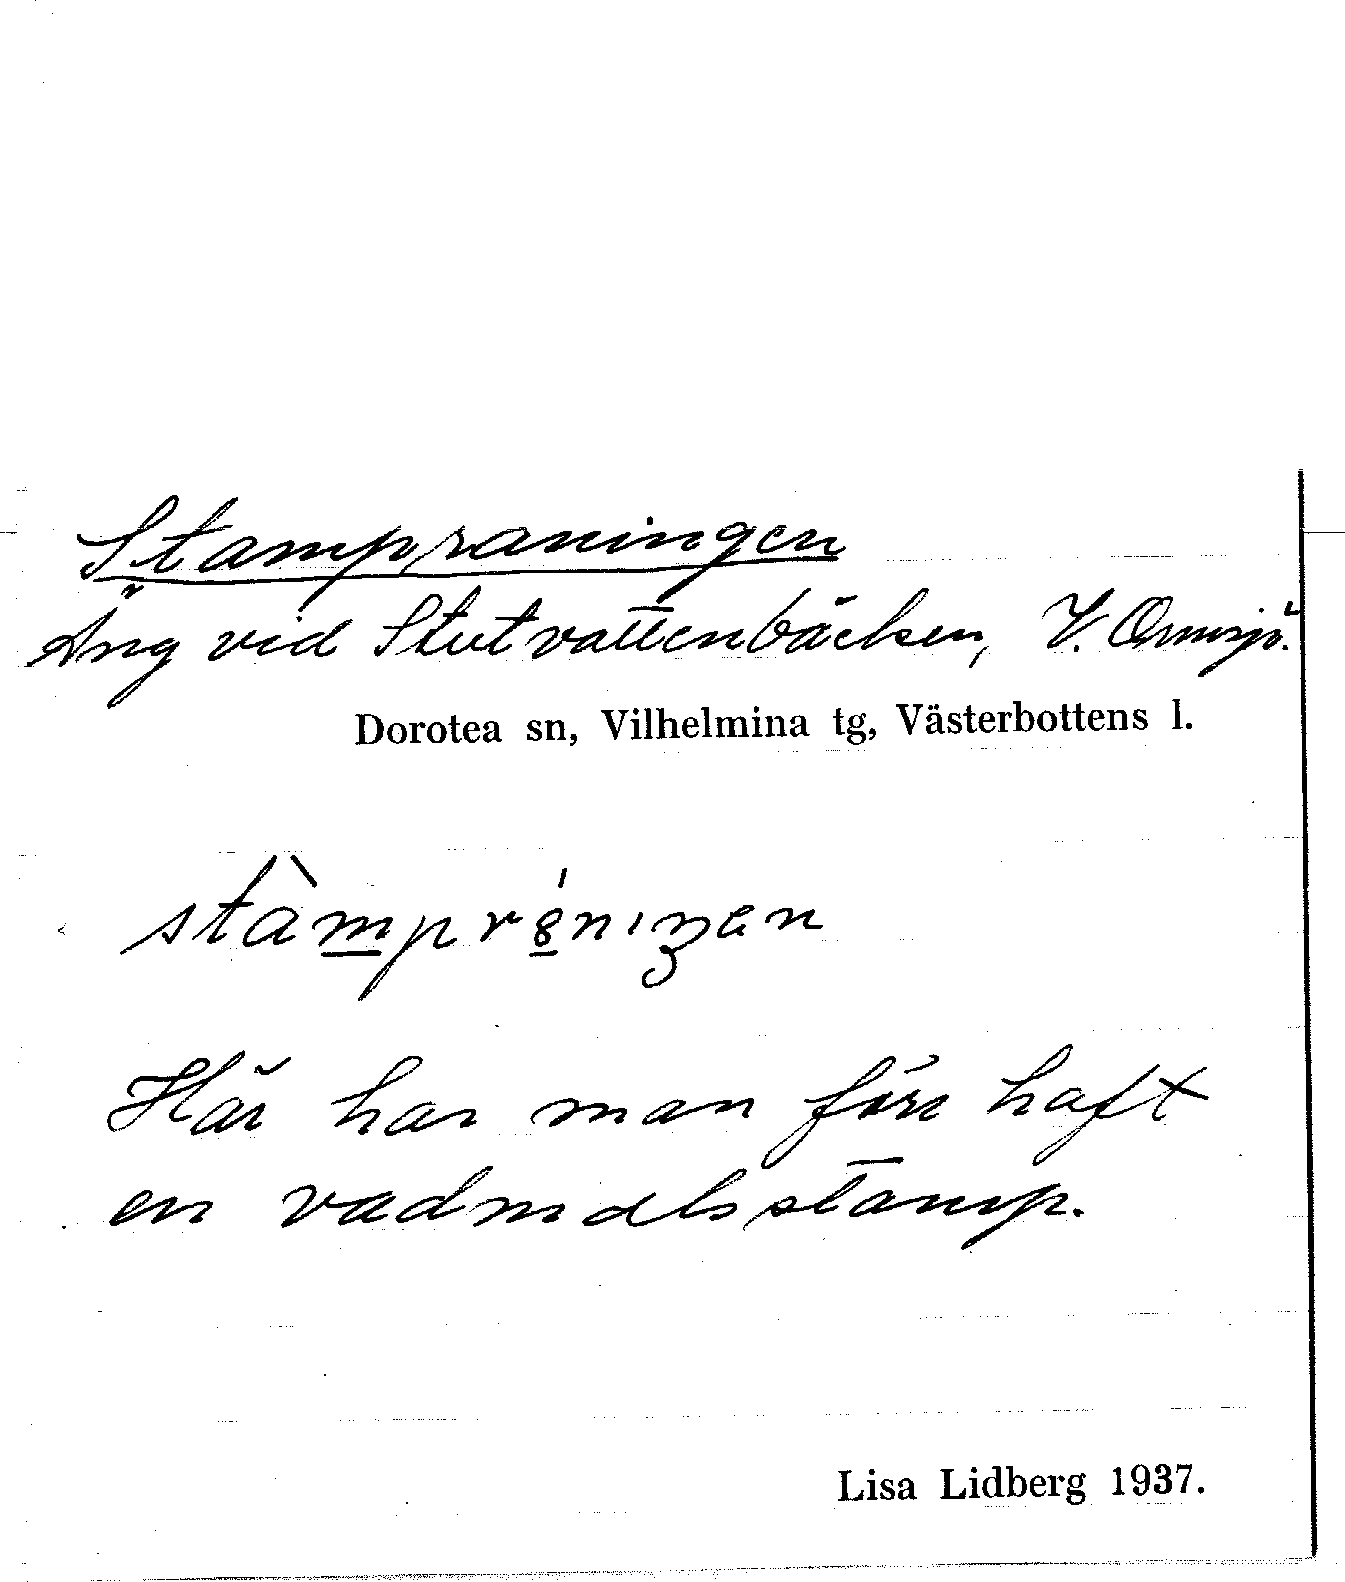 Stampraningen
Äng vid Stutvattenbäcken, V. Ormsjö.
Dorotea sn, Vilhelmina tg, Västerbottens l.
Här har man förr haft
en vadmalsstamp.
Lisa Lidberg 1937.